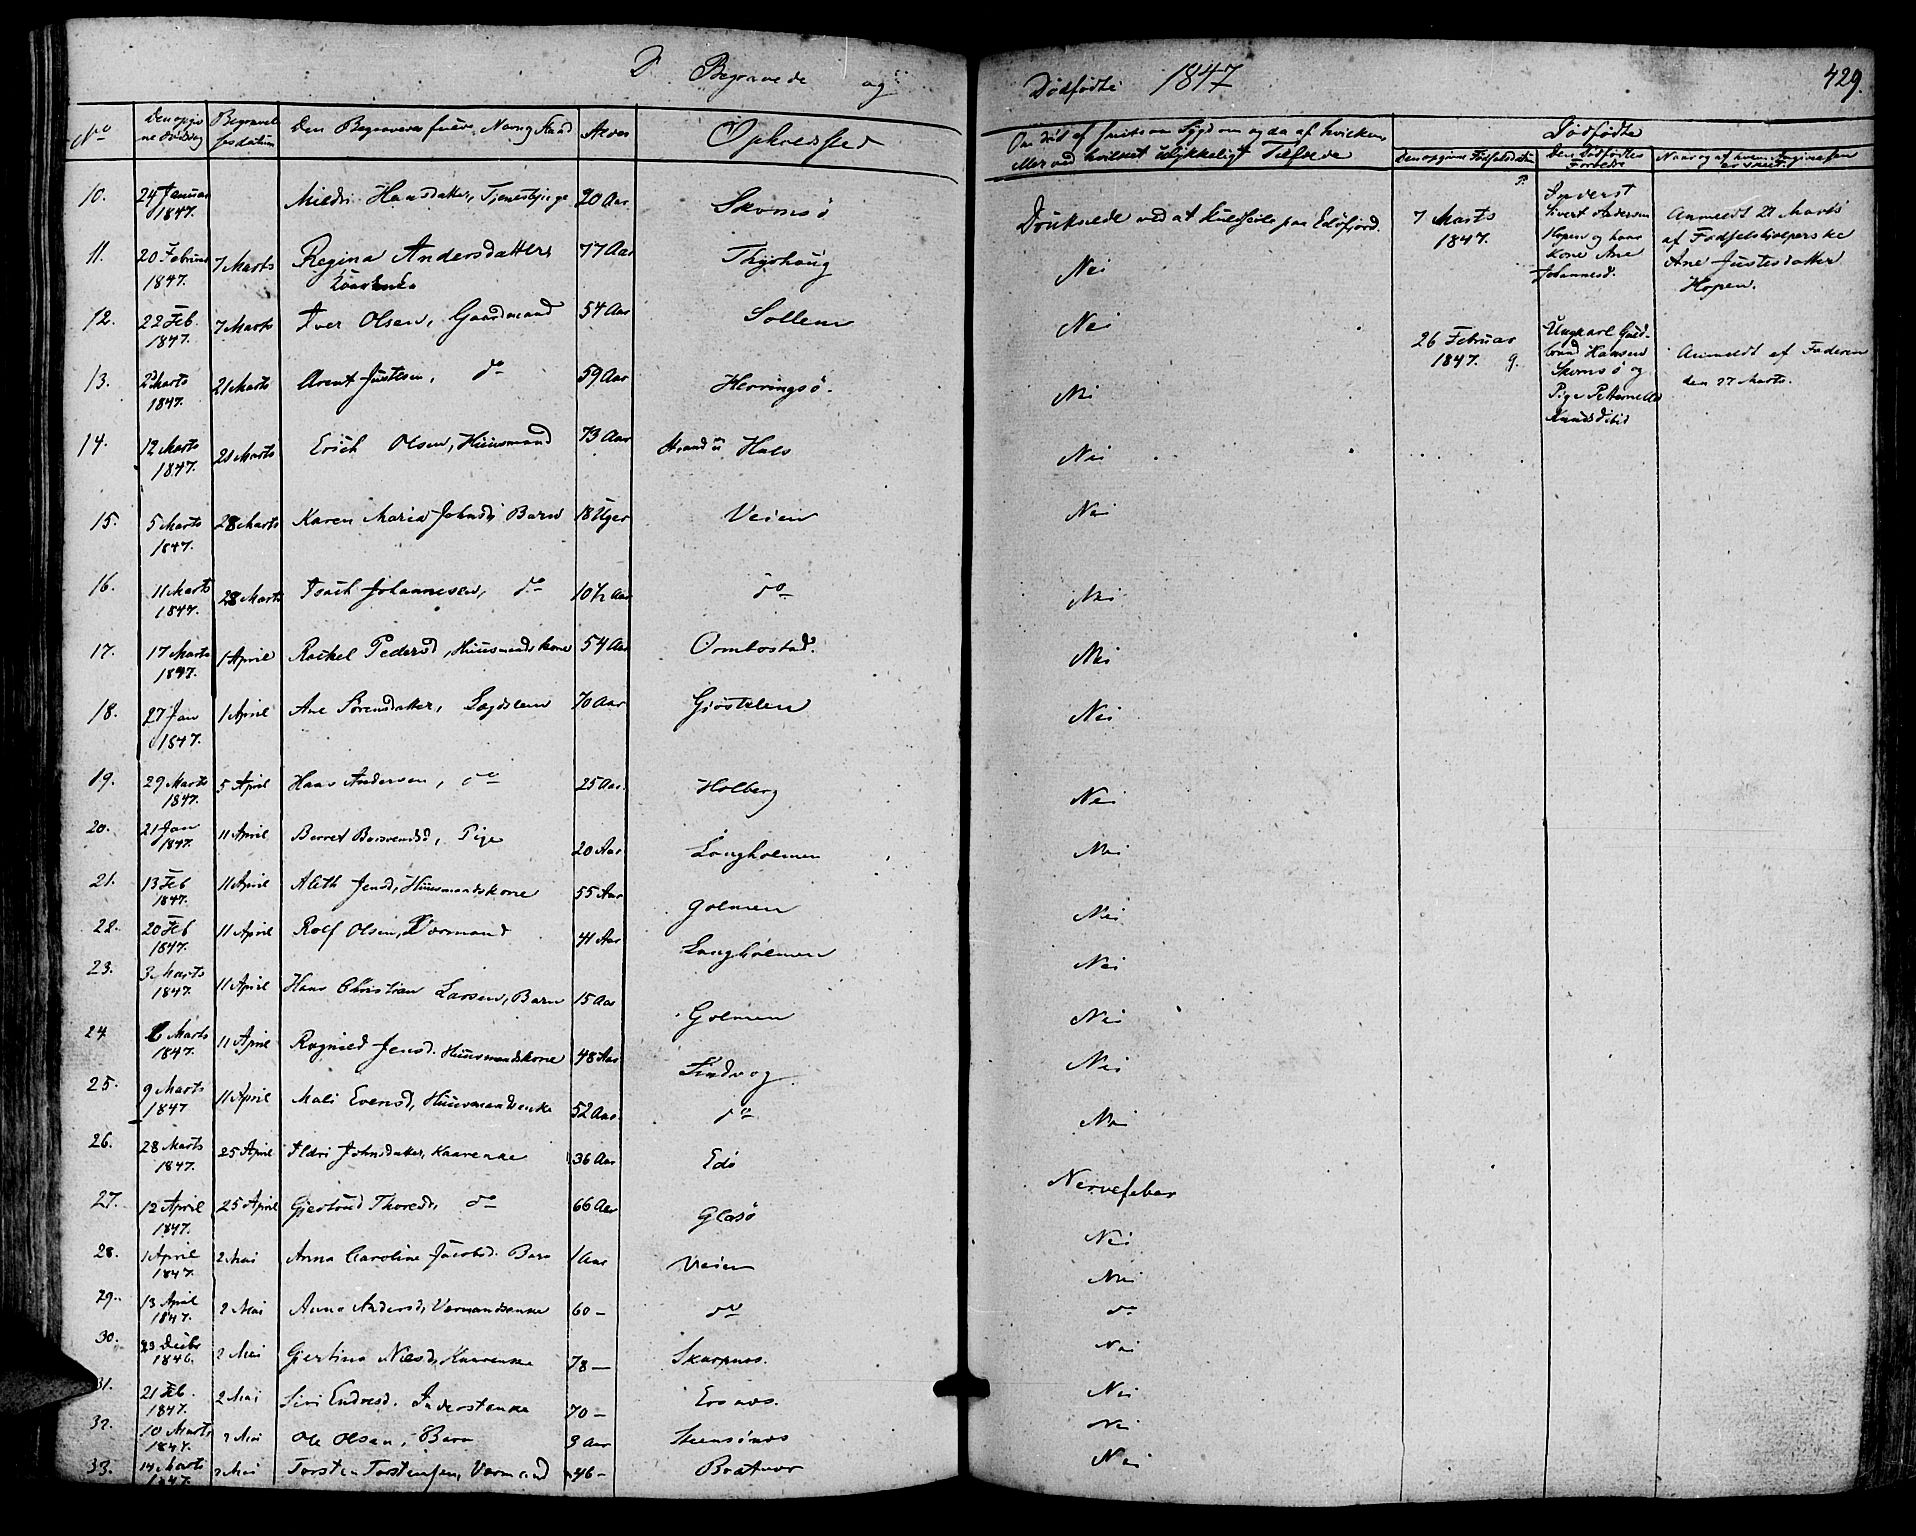 D. Begravede og Dødfødte 1847
429.
No
Den opgivne Dødsdag
Begravelsesdatum
Den Begravedes fulde Navn og Stand
Alder
Opholdssted
Om død af smitsom Sygdom og da af hvilken
eller ved hvilket ulykkeligt Tilfælde
Dødfødte
Den opgivne Fødselsdatum
Den Dødfødtes Forældre
Naar og af hvem Angivelsen er skeet
10. 24 Januar 1847. Mildri Hansdatter, Tjenestpige 20 Aar Skomsø Druknede ved at kuldseile paa Edøfjord.
11. 20 Februar 1847. 7 Marts Regina Andersdatter Kaarenke 77 Aar Thijshaug Nei
12. 22 Feb. 1847. 7 Marts Iver Olsen, Gaardmand 54 Aar Sollem Nei
13. 2 Marts 1847. 21 Marts Arent Justesen, do 59 Aar Herringsø. Nei
14. 12 Marts 1847. 21 Marts Erich Olsen, Huusmand 73 Aar Strand u Hals Nei
15. 5 Marts 1847. 28 Marts Karen Maria Johnsd; Barn 18 Uger Veien Nei
16. 11 Marts 1847. 28 Marts Isach Johannesen, do 10½ Aar do Nei
17. 17 Marts 1847. 1 April Rachel Pedersd, Huusmandskone 54 Aar Ormbostad. Nei
18. 27 Jan 1847. 1 April Ane Sørensdatter, Lægdslem 70 Aar Gjøstelen Nei
19. 29 Marts 1847. 5 April Hans Andersen, do 25 Aar. Holberg Nei
20. 21 Jan 1847. 11 April Berret Baardsd, Pige 20 Aar Langholmen Nei
21. 13 Feb 1847. 11 April Aleth Jensd, Huusmandskone 55 Aar Golmen Nei
22. 20 Feb 1847. 11 April Rolf Olsen, Værmand 41 Aar Langholmen Nei
23. 3 Marts 1847. 11 April Hans Christian Larsen, Barn 15 Aar Golmen Nei
24. 6 Marts 1847. 11 April Ragnild Jensd. Huusmandskone 48 Aar Kindvog Nei
25. 9 Marts 1847 11 April Mali Evensd, Huusmandsenke 52 Aar do Nei
26. 28 Marts 1847. 25 April Ildri Johnsdatter, Kaarenke 36 Aar Edø Nervefeber
27. 12 April 1847. 25 April Gjertrud Thoresd, do 66 Aar Glasø Nei
28. 1 April 1847. 2 Mai Anna Caroline Jacobsd. Barn 1 Aar Veien Nei
29. 13 April 1847. 2 Mai Anne Andersd, Værmandsenke 60 — do do
30. 23 Decbr 1846. 2 Mai Gjertina Nilsd, Kaarenke 78 — Skarpnes. Nei
31. 21 Feb. 1847. 2 Mai Siri Endresd. Inderstenke 70 — Ersnes. Nei
32. 10 Marts 1847. 2 Mai Ole Olsen, Barn 3 Aar Steensønes Nei
33. 14 Marts 1847. 2 Mai Torsten Torstensen, Værmand 46 — Bratvær Nei
7 Marts 1847. P.
Inderst
Sivert Andersen
Hopen og hans
Kone Ane
Johannesd.
Anmeldt 21 Marts
af Fødselshjelperske
Ane Justesdatter
Hopen.
26 Februar 1847. g.
Ungkarl Guldbrand Hansen
Skomsø og
Pige Petternelle
Knudsd ibid
Anmeldt af Faderen
den 27 Marts.